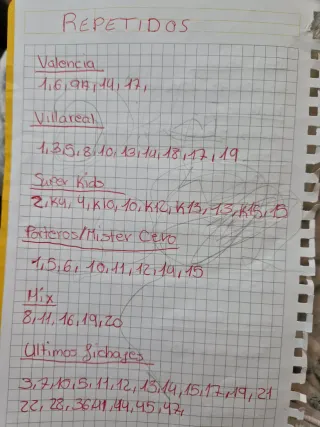 REPETIDOS
Valencia
1,6,9A,14,17,
Villareal
1,3,5,8,10,13,14,18,17,19
Super Kids
2,K4,4,K10,10,K12,K13,13,K15,15
Porteros/Mister Cero
1,5,6, 10,11,12,14,15
Mix
8,11,16,19,20
Ultimos fichajes
3,7,10,5,11,12,13,14,15,17,19,21
22,28,36,41,44,45,47,